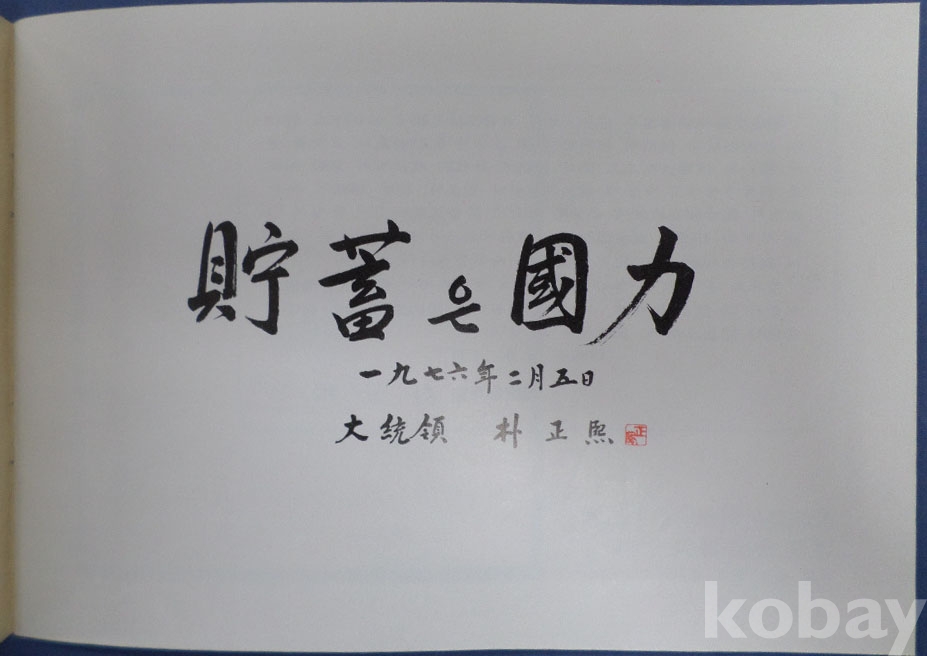 貯蓄은 國力
一九七六年 二月五日
大統領 朴正熙
kobay